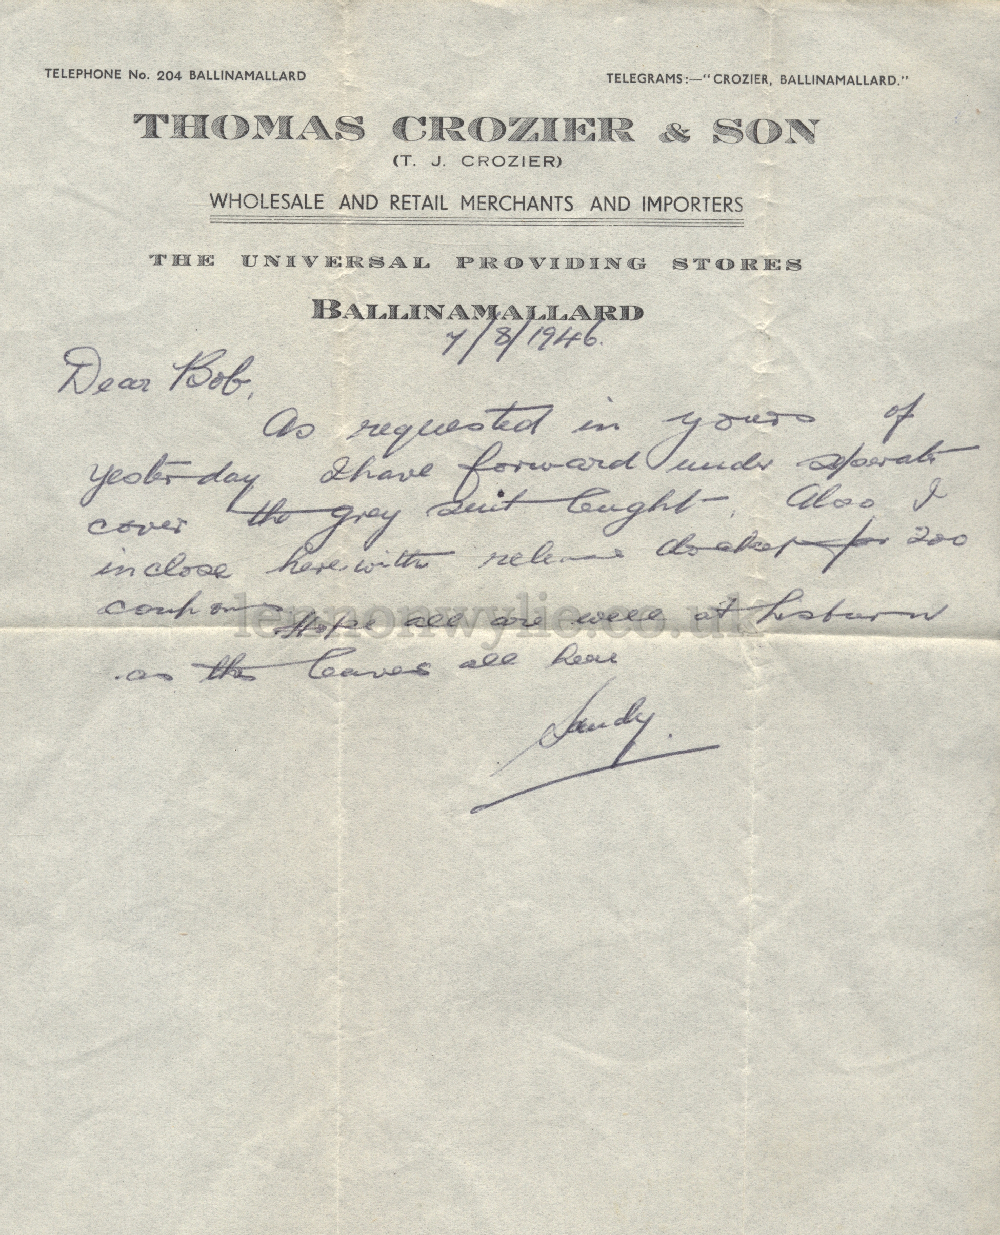 TELEPHONE No. 204 BALLINAMALLARD
TELEGRAMS:—"CROZIER, BALLINAMALLARD."
THOMAS CROZIER & SON
(T. J. CROZIER)
WHOLESALE AND RETAIL MERCHANTS AND IMPORTERS
THE UNIVERSAL PROVIDING STORES
BALLINAMALLARD
7/8/1946.
Dear Bob,
As requested in yours of
yesterday I have forward under seperate
cover the grey suit lenght. Also I
inclose herewith release docket for 200
coupons
Hope all are well at Lisburn
as this leaves all here
Sandy.
lennonwylie.co.uk